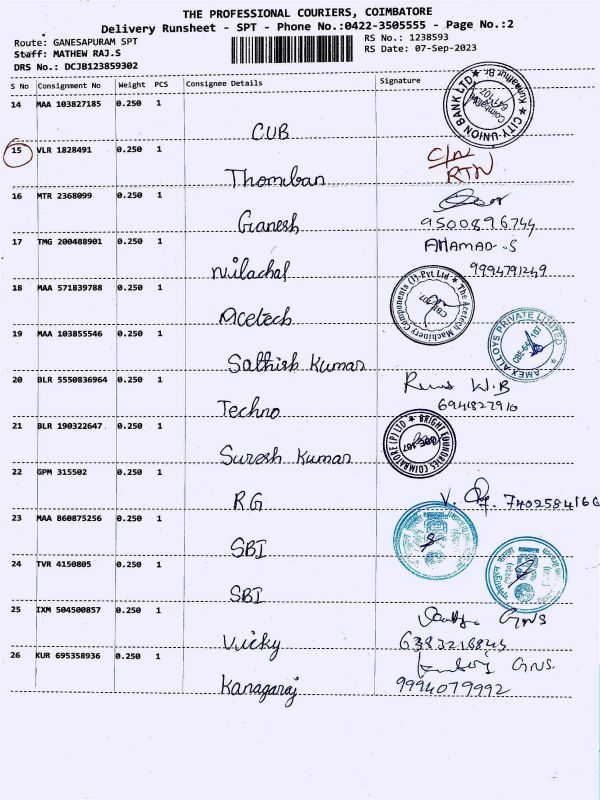 THE PROFESSIONAL COURIERS, COIMBATORE
Delivery Runsheet - SPT - Phone No.:0422-3505555 - Page No.:2
Route: GANESAPURAM SPT
RS No.: 1238593
Staff: MATHEW RAJ.S
RS Date: 07-Sep-2023
DRS No.: DCJB123859302
S No Consignment No Weight PCS Consignee Details Signature
14 MAA 103827185 0.250 1
CUB
CITY UNION BANK LTD.
Kunnathur Br.
15 VLR 1828491 0.250 1
Thomban
C/N
RTN
16 MTR 2368099 0.250 1
Ganesh
9500896744
17 TMG 200488901 0.250 1
Nilachal
AHAMAD.S
9994791249
18 MAA 571839788 0.250 1
Acetech
The Acetech Machinery Components (I) Pvt Ltd
19 MAA 103855546 0.250 1
Sathish Kumar
AMEX ALLOYS PRIVATE LIMITED
20 BLR 5550836964 0.250 1
Techno
6941827910
21 BLR 190322647 0.250 1
Suresh Kumar
BRIGHT FOUNDRIES COIMBATORE (P) LTD
22 GPM 315502 0.250 1
RG
V. 7402584166
23 MAA 860875256 0.250 1
SBI
24 TVR 4150805 0.250 1
SBI
25 IXM 504500857 0.250 1
Vicky
GNS
6383216845
26 KUR 695358936 0.250 1
Kanagaraj
GNS.
9994079992